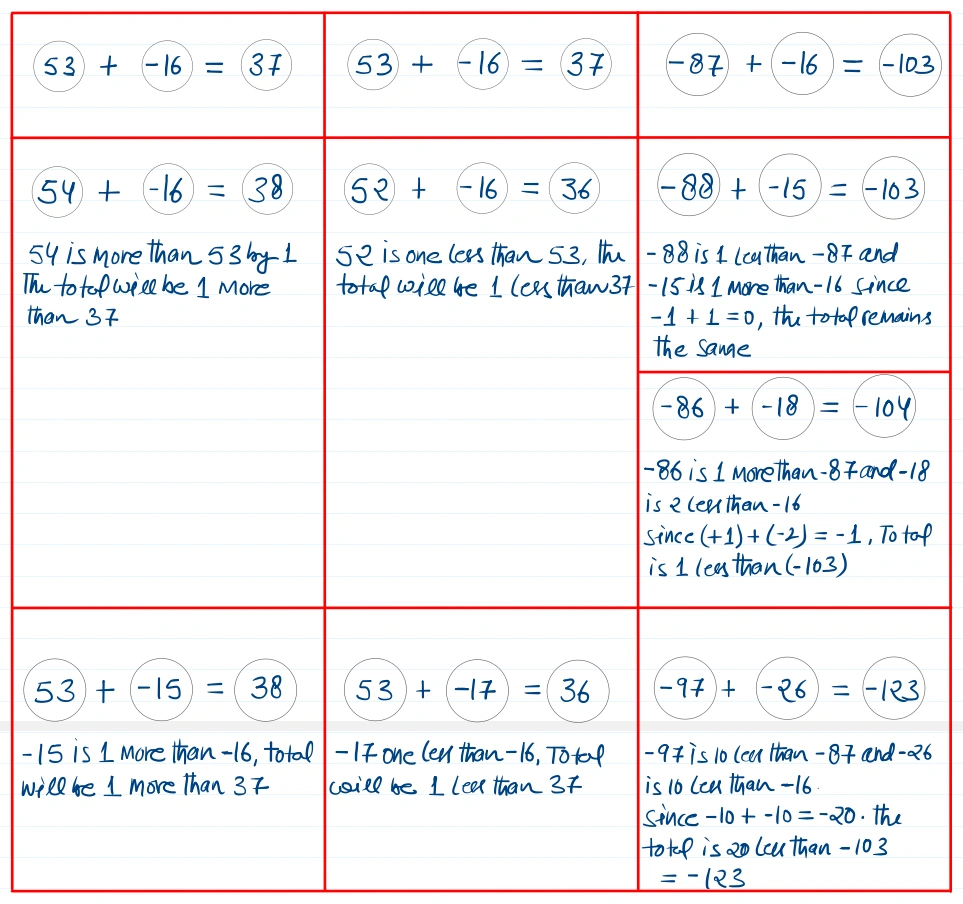 53 + -16 = 37
53 + -16 = 37
-87 + -16 = -103
54 + -16 = 38
54 is more than 53 by 1
The total will be 1 More
than 37
52 + -16 = 36
52 is one less than 53, the
total will be 1 less than 37
-88 + -15 = -103
-88 is 1 less than -87 and
-15 is 1 more than -16 since
-1 + 1 = 0, the total remains
the same
-86 + -18 = -104
-86 is 1 More than -87 and -18
is 2 less than -16
since (+1) + (-2) = -1, Total
is 1 less than (-103)
53 + -15 = 38
-15 is 1 More than -16, total
will be 1 more than 37
53 + -17 = 36
-17 one less than -16, Total
will be 1 less than 37
-97 + -26 = -123
-97 is 10 less than -87 and -26
is 10 less than -16.
since -10 + -10 = -20. the
total is 20 less than -103
= -123